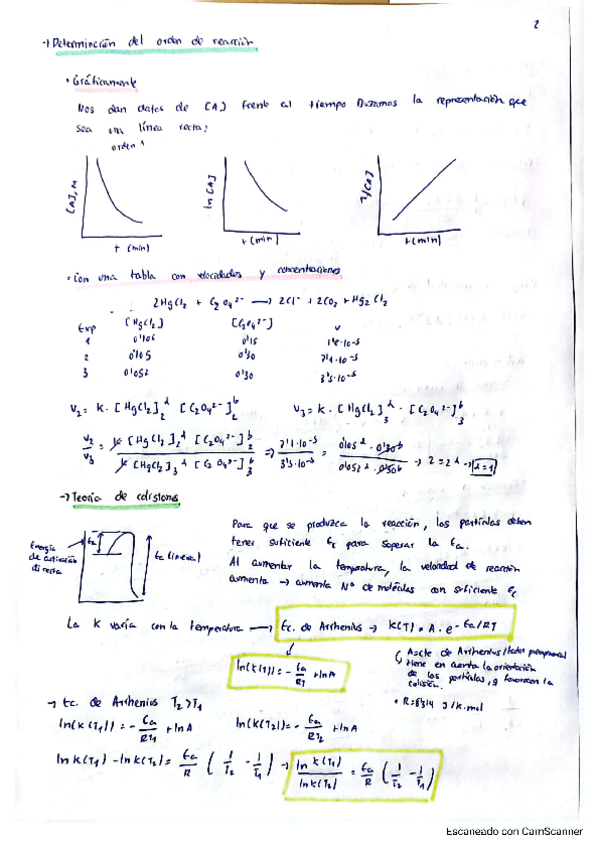 2
→ Determinación del orden de reacción
• Gráficamente
Nos dan datos de [A] frente al tiempo Buscamos la representación que
sea una línea recta:
orden 1
[A], M
ln [A]
1/[A]
t (min)
t (min)
t (min)
• Con una tabla con velocidades y concentraciones
2HgCl₂ + C₂O₄²⁻ → 2Cl⁻ + 2CO₂ + Hg₂Cl₂
Exp [HgCl₂] [C₂O₄²⁻] v
1 0'105 0'15 1'8·10⁻⁵
2 0'105 0'30 7'1·10⁻⁵
3 0'052 0'30 3'5·10⁻⁵
V₂ = k · [HgCl₂]₂ᵃ [C₂O₄²⁻]₂ᵇ V₃ = k · [HgCl₂]₃ᵃ · [C₂O₄²⁻]₃ᵇ
V₂/V₃ = k [HgCl₂]₂ᵃ [C₂O₄²⁻]₂ᵇ / k [HgCl₂]₃ᵃ [C₂O₄²⁻]₃ᵇ ⇒ 7'1·10⁻⁵/3'5·10⁻⁵ = 0'105ᵃ · 0'30ᵇ / 0'052ᵃ · 0'30ᵇ → 2 = 2ᵃ → a=1
→ Teoría de colisiones
Energía
de activación
directa
Ea
Ea (inversa)
Para que se produzca la reacción, las partículas deben
tener suficiente Ec para superar la Ea.
Al aumentar la temperatura, la velocidad de reacción
aumenta → aumenta Nº de moléculas con suficiente Ec
La K varía con la temperatura → Ec. de Arrhenius → K(T) = A · e^-Ea/RT
ln(k(T)) = - Ea/RT + lnA
A=cte de Arrhenius/factor preexponencial
tiene en cuenta la orientación
de las partículas, y favorecen la
colisión.
• R=8'314 J/K·mol
→ Ec. de Arrhenius T₂>T₁
ln(k(T₁)) = - Ea/RT₁ + lnA ln(k(T₂)) = - Ea/RT₂ + lnA
ln k(T₁) - ln k(T₂) = Ea/R (1/T₂ - 1/T₁) → ln k(T₁)/ln k(T₂) = Ea/R (1/T₂ - 1/T₁)
Escaneado con CamScanner